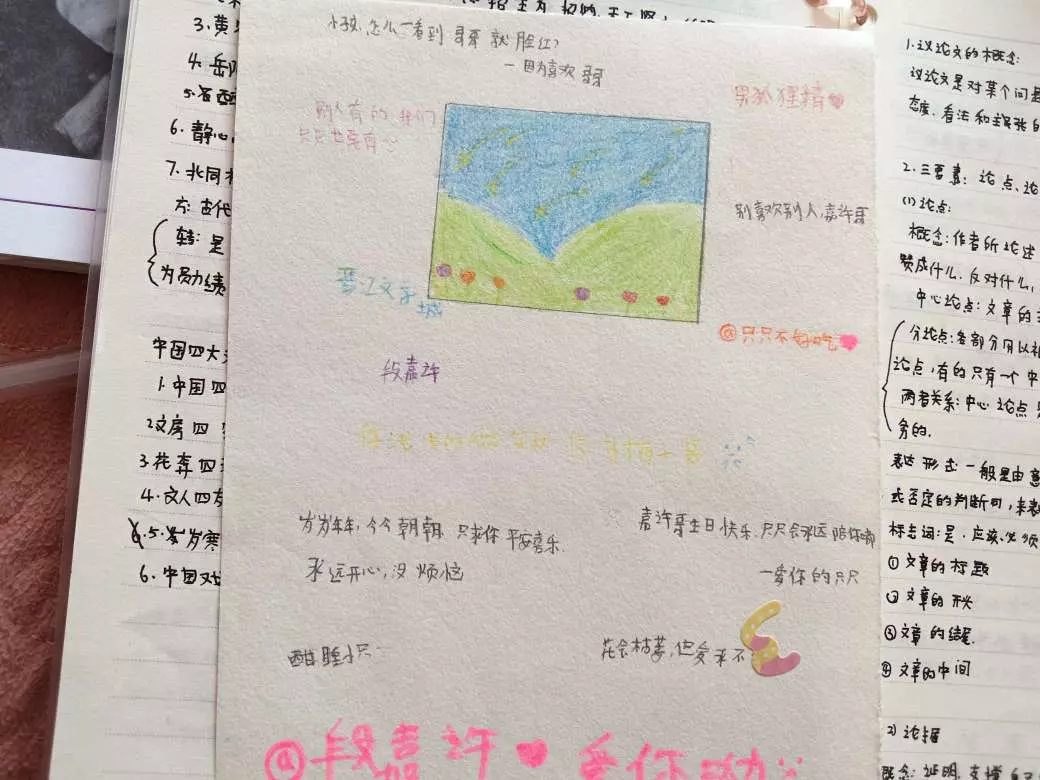 3.黄
4.岳
5.石
6.静心
7.北同
方:古代
转:是
为员力绩
中国四大
1.中国四
2文房四
3.花卉四
4.文人四友
5.岁寒
6.中国戏
小孩,怎么一看到哥哥就脸红?
—因为喜欢哥哥
男狐狸精
别人有的,我们
只只也要有
别喜欢别人,嘉许哥
晋江文学
城
@只只不好吃
段嘉许
岁岁年年,今今朝朝,只求你平安喜乐.
永远开心,没烦恼
嘉许哥生日快乐.只只会永远陪你
—爱你的只只
酣睡小只
花会枯萎,但爱永不
@段嘉许 爱你
1.议论文的概念:
议论文是对某个问题
态度、看法和主张的
2.三要素:论点、论
(1)论点:
概念:作者所论述
赞成什么,反对什么,
中心论点:文章的
分论点:各部分用以
论点,有的只有一个中
两者关系:中心论点
务的.
表达形式一般是由意
或否定的判断句,来表
标志词:是、应该、必须
①文章的标题
②文章的
③文章的结尾
④文章的中间
2)论据
概念:证明、支撑